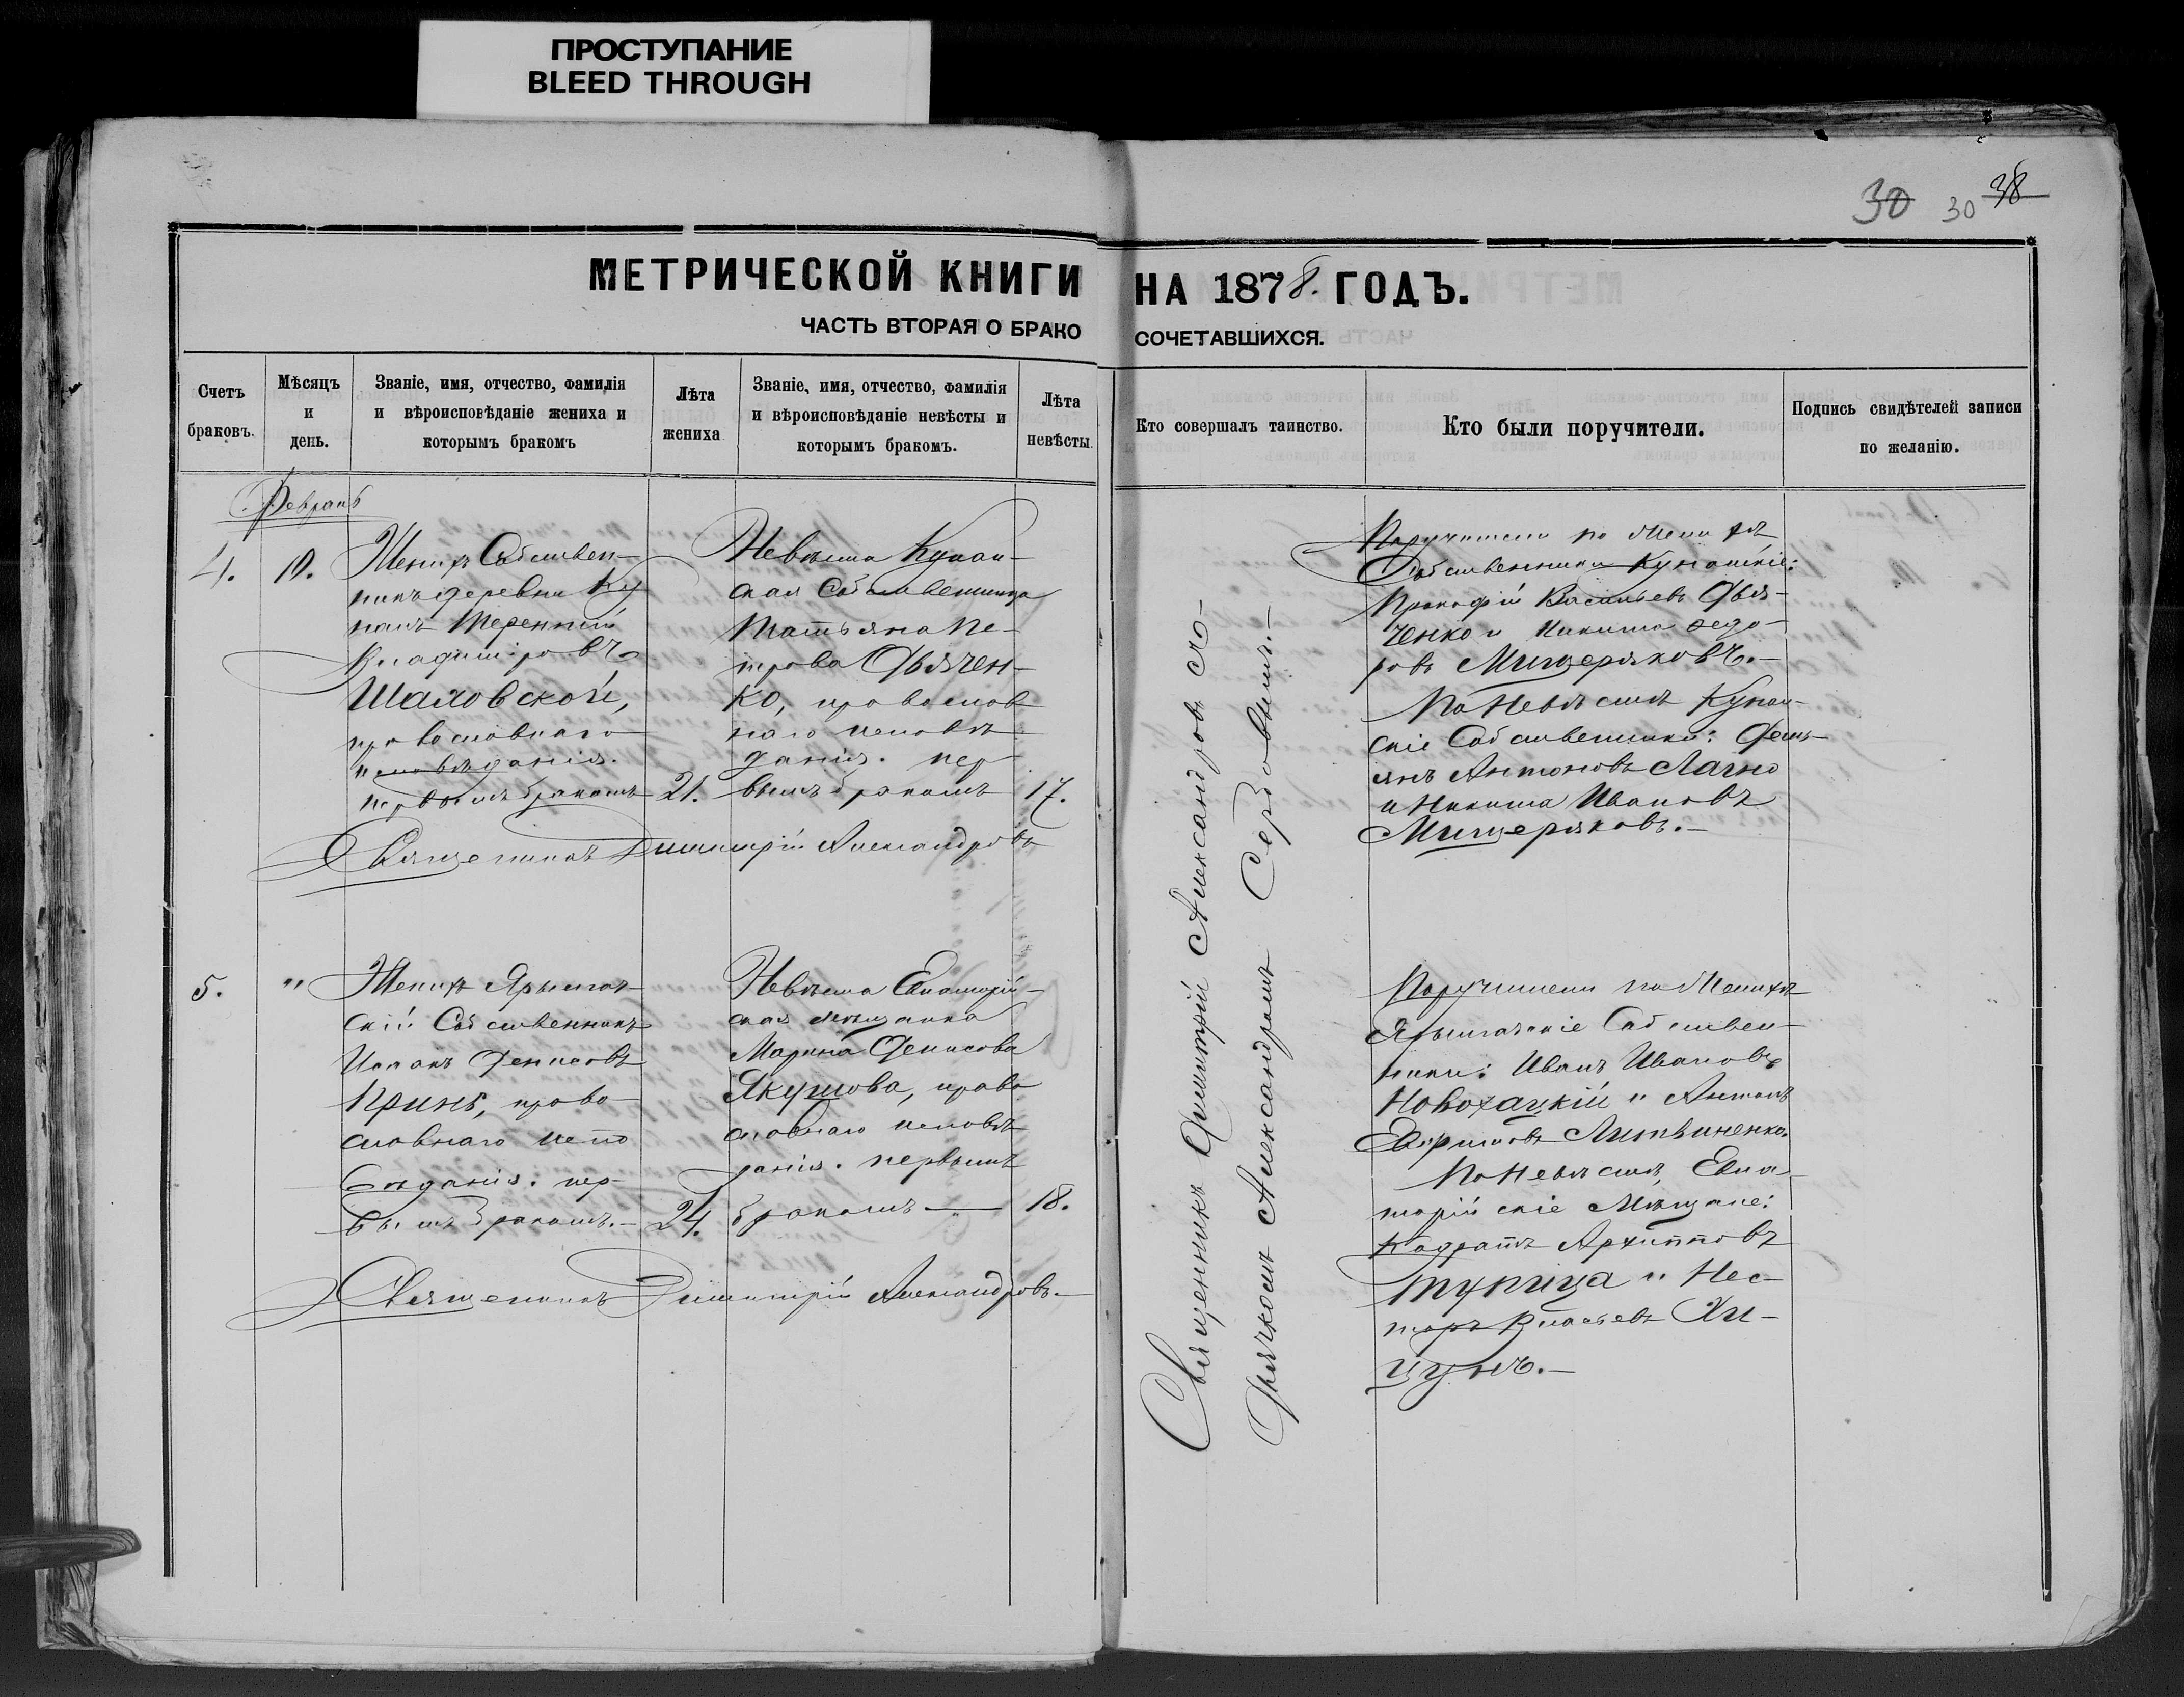 ПРОСТУПАНИЕ
BLEED THROUGH
30 30 38
МЕТРИЧЕСКОЙ КНИГИ НА 1878. ГОДЪ.
ЧАСТЬ ВТОРАЯ О БРАКОСОЧЕТАВШИХСЯ.
Счетъ браковъ.
Мѣсяцъ и день.
Званіе, имя, отчество, фамилія
и вѣроисповѣданіе жениха и
которымъ бракомъ
Лѣта жениха
Званіе, имя, отчество, фамилія
и вѣроисповѣданіе невѣсты и
которымъ бракомъ.
Лѣта невѣсты.
Кто совершалъ таинство.
Кто были поручители.
Подпись свидѣтелей записи
по желанію.
Февраль
4.
10.
Женихъ Собствен-
никъ деревни Ку
нанъ Терентій
Владиміровъ
Шаловской,
православнаго
исповѣданія.
первымъ бракомъ
21.
Невѣста Кунан-
ская Собственница
Татьяна Пе-
трова Дьячен-
ко, православ
наго исповѣ
данія. пер
вымъ бракомъ
17.
Священникъ Димитрій Александровъ
Поручители по Женихѣ
Собственники Кунанскіе:
Прокофій Васильевъ Дья-
ченко и Никита Федо-
ровъ Мищеряковъ.-
По Невѣстѣ Кунан-
скіе Собственники: Демь-
янъ Антоновъ Лагно
и Никита Ивановъ
Мищеряковъ.-
Священникъ Димитрій Александровъ съ
Дьячкомъ Александромъ Сербовымъ.-
5.
"
Женихъ
скій Собственникъ
Исаакъ Денисовъ
Кринь, право-
славнаго испо
вѣданія. пер-
вымъ бракомъ.-
24.
Невѣста Евпаторій-
ская мѣщанка
Марина Денисова
Якушова, право
славнаго исповѣ
данія. первымъ
бракомъ
18.
Священникъ Димитрій Александровъ.-
Поручители по Женихѣ
Собствен-
ники: Иванъ Ивановъ
Новохацкій и Антонъ
Ефимовъ Литвиненко.
По Невѣстѣ, Евпа-
торійскіе Мѣщане:
Кодратъ Архипповъ
Турица и Нес-
торъ Власьевъ Хи-
цунъ.-